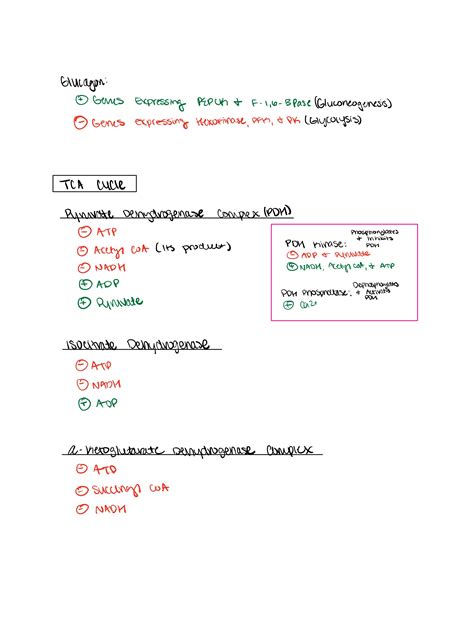 Glucagon:
⊕ Genes Expressing PEPCK & F-1,6-BPase (Gluconeogenesis)
⊖ Genes expressing Hexokinase, PFK, & PK (Glycolysis)
TCA Cycle
Pyruvate Dehydrogenase Complex (PDH)
⊖ ATP
⊖ Acetyl CoA (its product)
⊖ NADH
⊕ ADP
⊕ Pyruvate
PDH Kinase: Phosphorylates & Inhibits PDH
⊖ ADP & Pyruvate
⊕ NADH, Acetyl CoA, & ATP
PDH Phosphatase: Dephosphorylates & Activates PDH
⊕ Ca2+
Isocitrate Dehydrogenase
⊖ ATP
⊖ NADH
⊕ ADP
α-Ketoglutarate Dehydrogenase Complex
⊖ ATP
⊖ Succinyl CoA
⊖ NADH